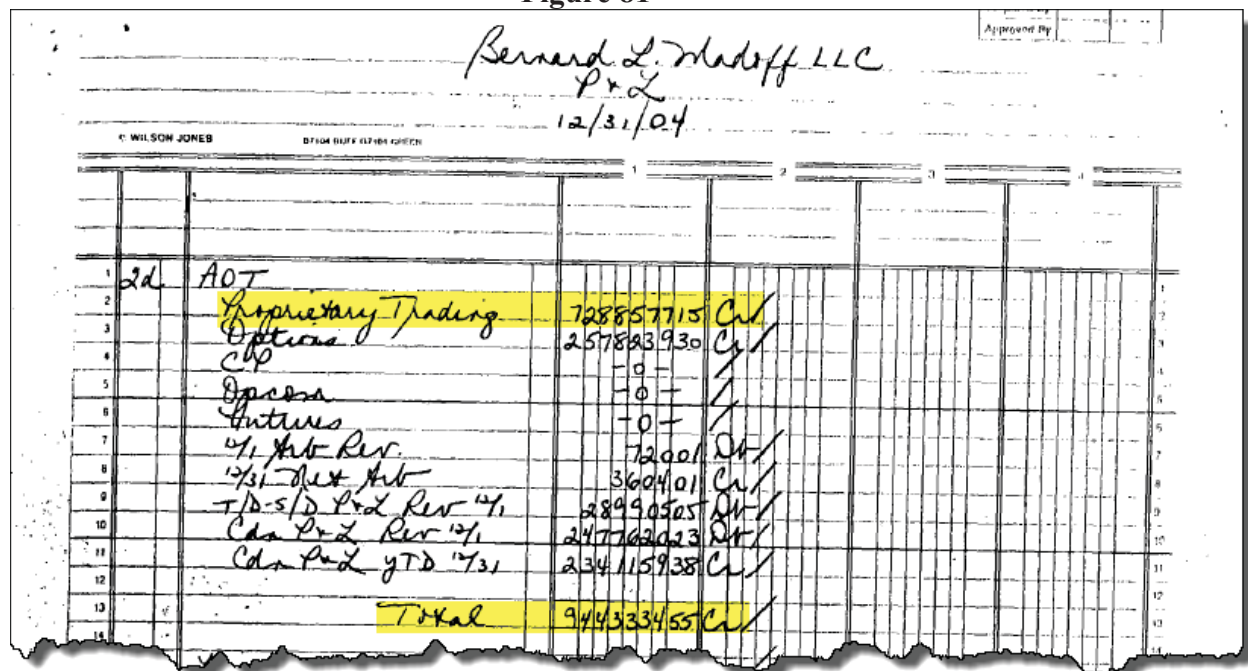 Approved By
Bernard L. Madoff LLC
P+L
12/31/04
WILSON JONES BUFF GREEN
1 2 3 4
1 2d AOT 1
2 Proprietary Trading 728857715 Cr / 2
3 Options 257823930 Cr / 3
4 CP -0- / 4
5 Opcom -0- / 5
6 Futures -0- / 6
7 12/1 Arb Rev. 72001 Dr / 7
8 12/31 Net Arb 360401 Cr / 8
9 T/D-S/D P+L Rev 12/1 28990505 Dr / 9
10 Cdn P+L Rev 12/1 247762023 Dr / 10
11 Cdn P+L YTD 12/31 234115938 Cr / 11
12 12
13 Total 944333455 Cr / 13
14